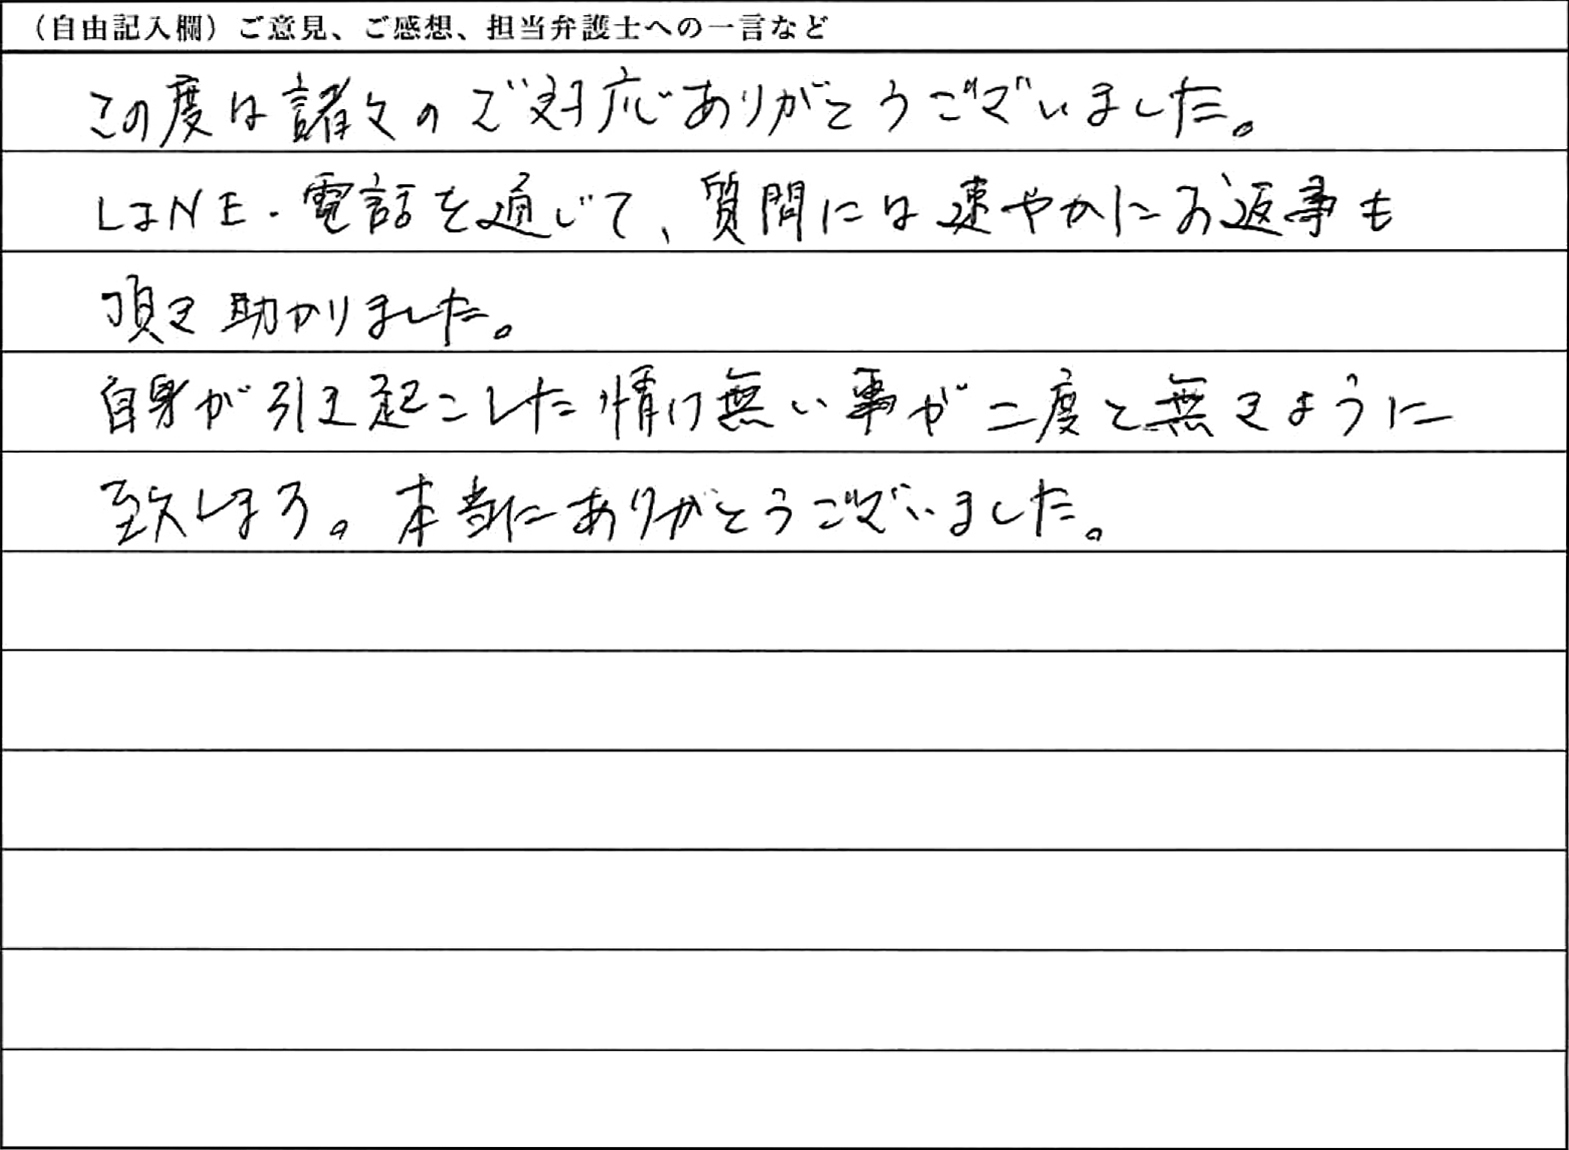 （自由記入欄）ご意見、ご感想、担当弁護士への一言など
この度は諸々のご対応ありがとうございました。
LINE・電話を通じて、質問には速やかにお返事も
頂き助かりました。
自身が引き起こした情け無い事が二度と無きように
致します。本当にありがとうございました。